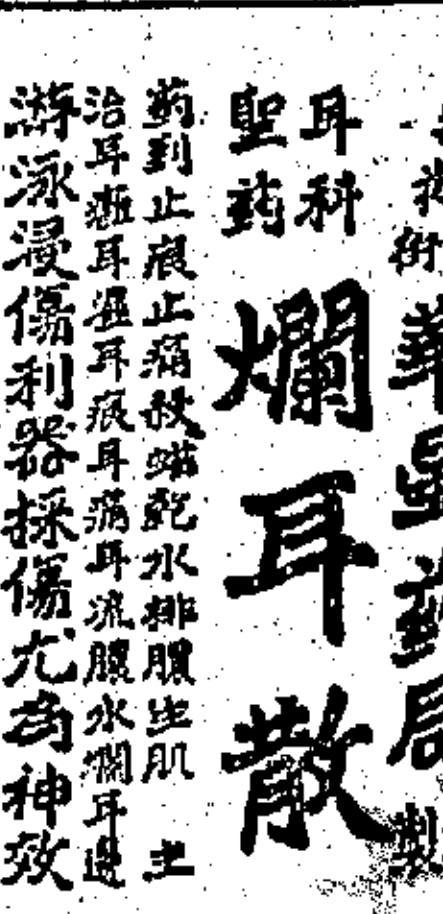 街華星葯製
耳科
聖葯
爛耳散
葯到止痕止痛殺乾水排膿生肌 主
治耳耳濕耳痕耳痛耳流膿水爛耳邊
游泳浸傷利器採傷尤為神效